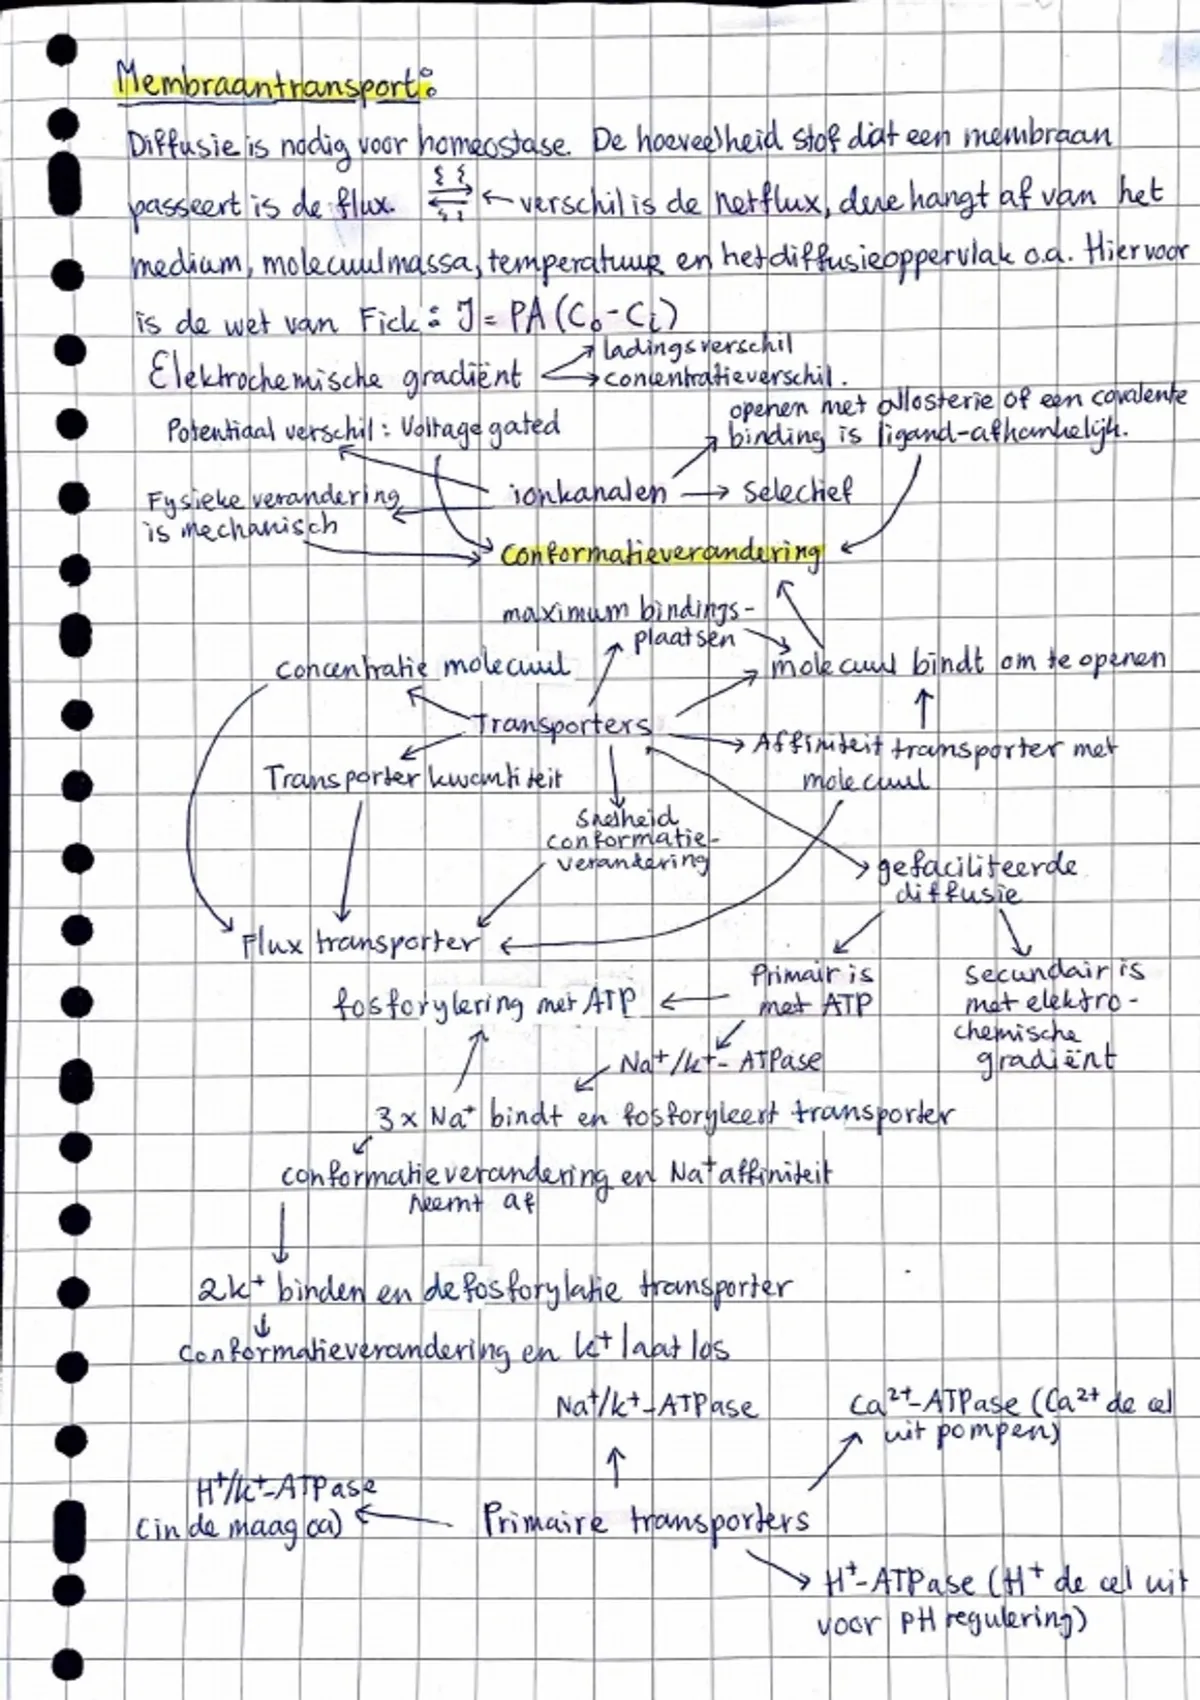 Membraantransport:
Diffusie is nodig voor homeostase. De hoeveelheid stof dat een membraan
passeert is de flux. ⇄ ← verschil is de netflux, deze hangt af van het
medium, molecuulmassa, temperatuur en het diffusieoppervlak o.a. Hiervoor
is de wet van Fick: J = PA (C₀-Cᵢ)
Elektrochemische gradiënt → ladingsverschil
→ concentratieverschil.
Potentiaal verschil: Voltage gated
openen met allosterie of een covalente
binding is ligand-afhankelijk.
Fysieke verandering
is mechanisch
ionkanalen → selectief
conformatieverandering
maximum bindings-
plaatsen
concentratie molecuul
molecuul bindt om te openen
Transporters
Transporter kwantiteit
Affiniteit transporter met
molecuul
Snelheid
conformatie-
verandering
gefaciliteerde
diffusie
Flux transporter
Primair is
met ATP
secundair is
met elektro-
chemische
gradiënt
fosforylering met ATP
Na⁺/k⁺-ATPase
3x Na⁺ bindt en fosforyleert transporter
conformatieverandering en Na⁺ affiniteit
neemt af
2k⁺ binden en defosforylatie transporter
conformatieverandering en k⁺ laat los
Na⁺/k⁺-ATPase
Ca²⁺-ATPase (Ca²⁺ de cel
uit pompen)
H⁺/k⁺-ATPase
(in de maag oa)
Primaire transporters
H⁺-ATPase (H⁺ de cel uit
voor pH regulering)